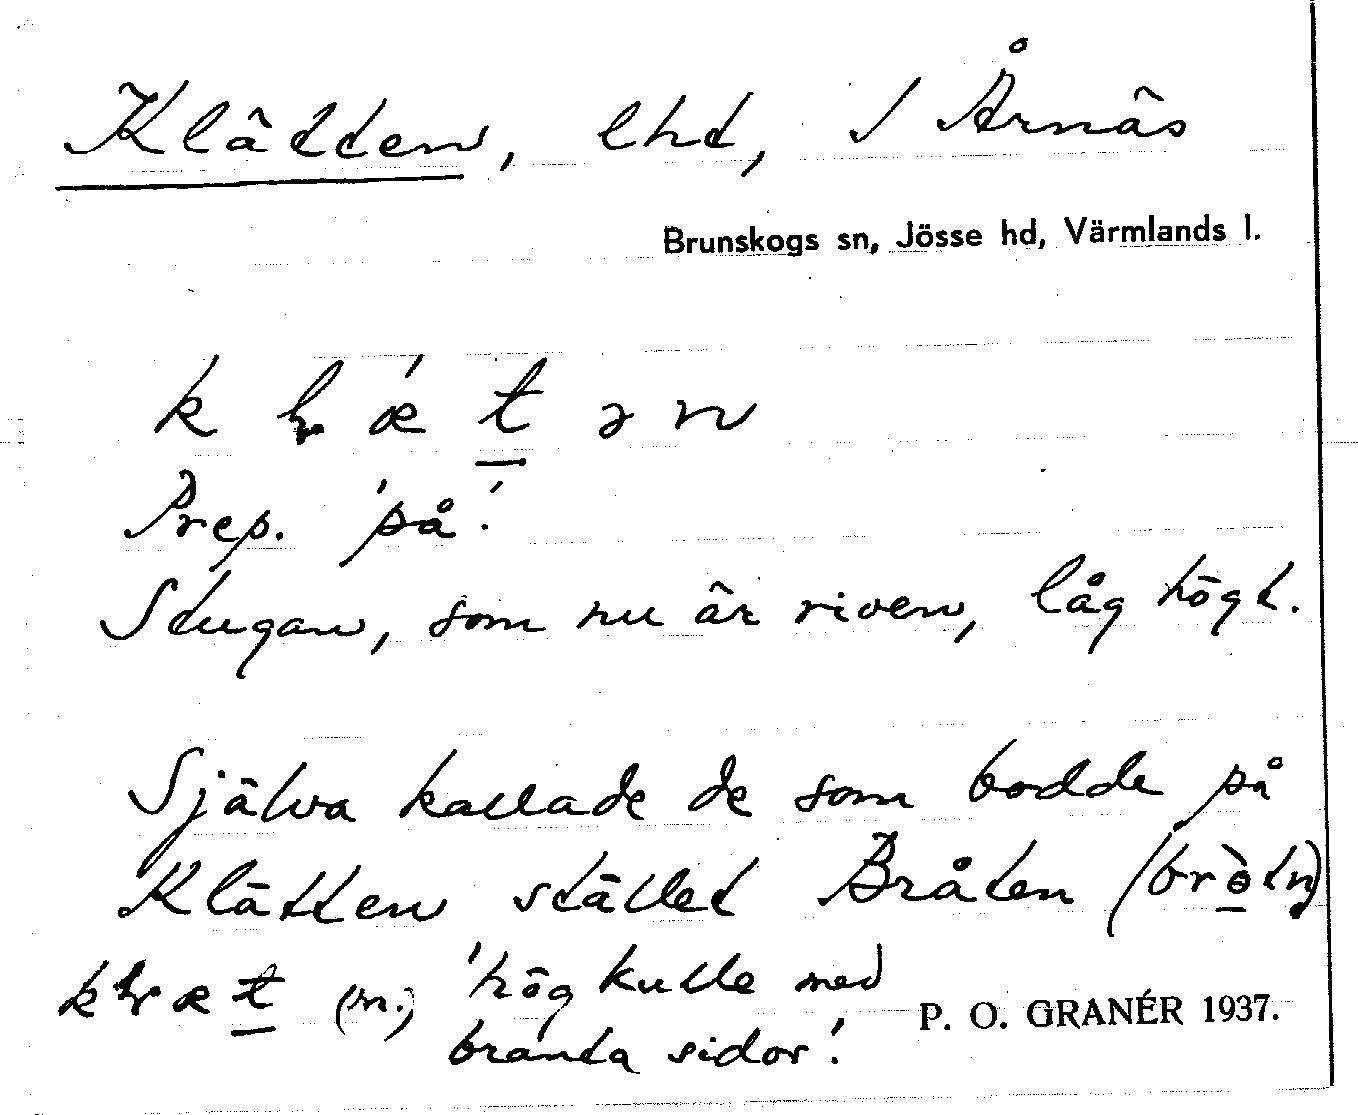 Klätten, lht, / Årnäs
Brunskogs sn, Jösse hd, Värmlands l.
Prep. 'på'.
Stugan, som nu är riven, låg högt.
Själva kallade de som bodde på
Klätten stället Bråten
(m.) 'hög kulle med
branta sidor'.
P. O. GRANÉR 1937.